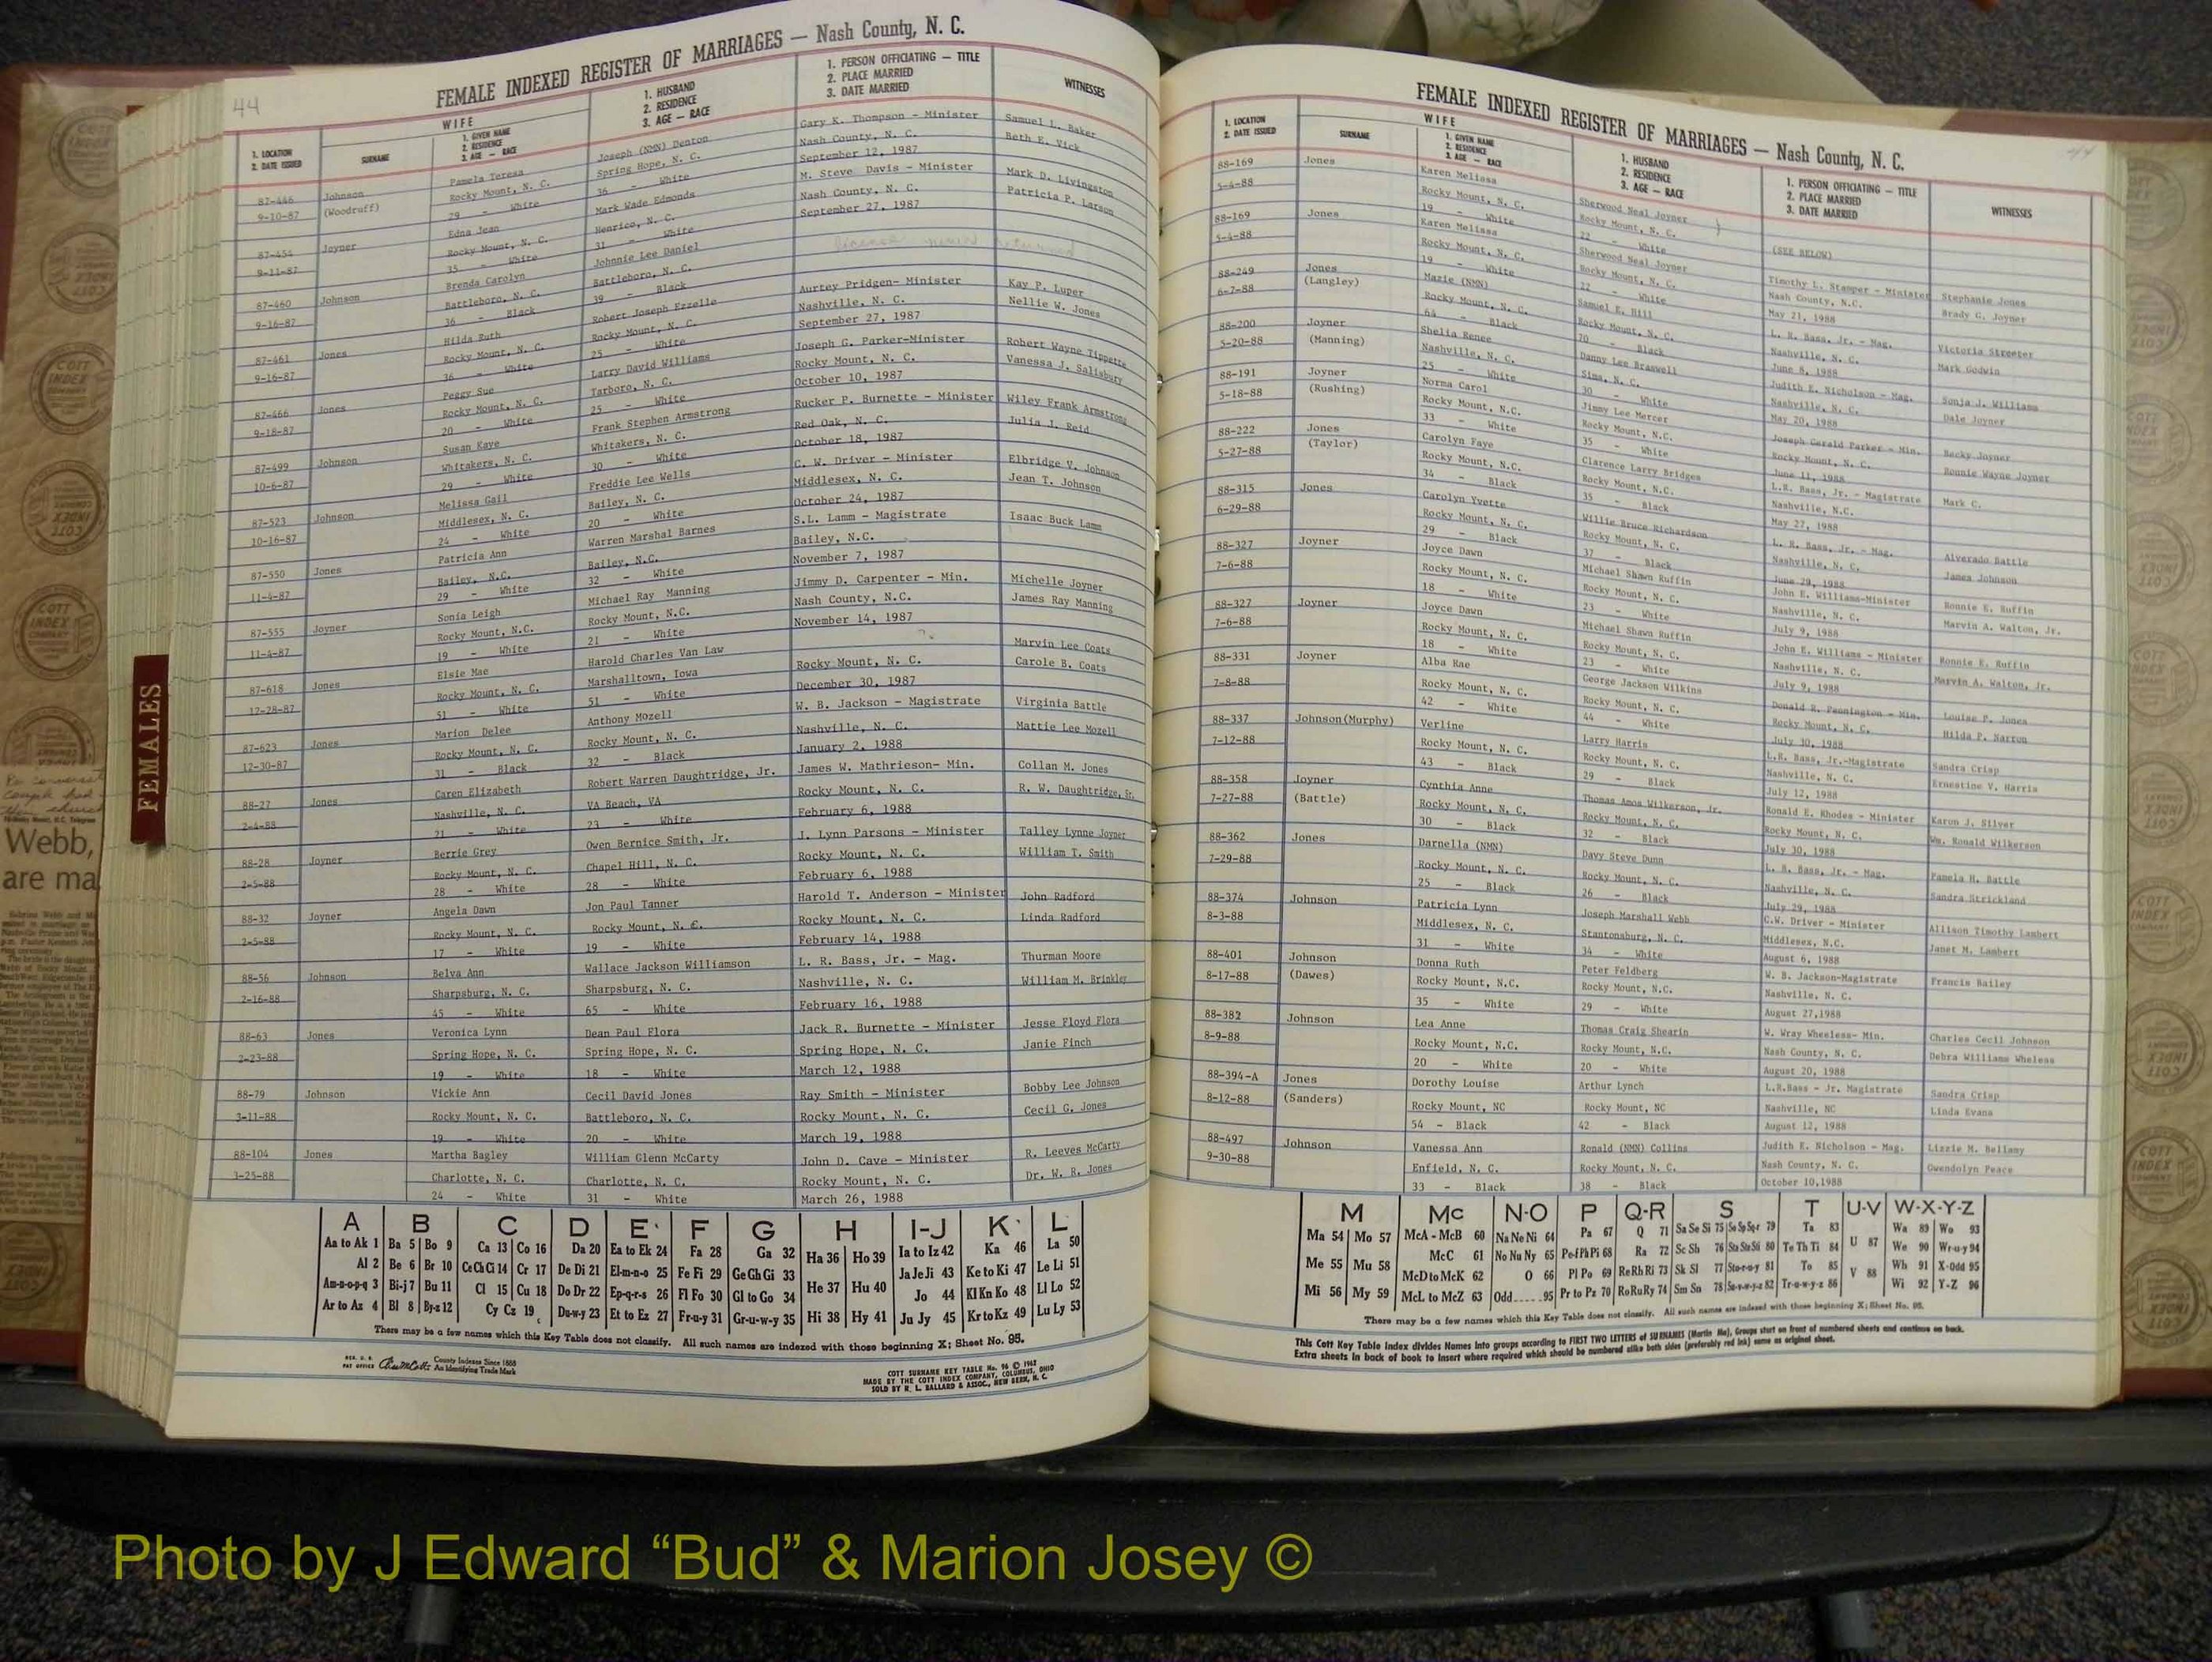 44
FEMALE INDEXED REGISTER OF MARRIAGES — Nash County, N. C.
1. LOCATION
2. DATE ISSUED
SURNAME
WIFE
1. GIVEN NAME
2. RESIDENCE
3. AGE — RACE
1. HUSBAND
2. RESIDENCE
3. AGE — RACE
1. PERSON OFFICIATING — TITLE
2. PLACE MARRIED
3. DATE MARRIED
WITNESSES
87-446 Johnson Pamela Teresa Joseph (NMN) Denton Gary K. Thompson - Minister Samuel L. Baker
9-10-87 (Woodruff) Rocky Mount, N. C. Spring Hope, N. C. Nash County, N. C. Beth E. Vick
29 - White 36 - White September 12, 1987
87-454 Joyner Edna Jean Mark Wade Edmonds M. Steve Davis - Minister Mark D. Livingston
9-11-87 Rocky Mount, N. C. Henrico, N. C. Nash County, N. C. Patricia P. Larson
35 - White 31 - White September 27, 1987
87-460 Johnson Brenda Carolyn Johnnie Lee Daniel license never returned
9-16-87 Battleboro, N. C. Battleboro, N. C.
36 - Black 39 - Black
87-461 Jones Hilda Ruth Robert Joseph Ezzelle Aurtey Pridgen- Minister Kay P. Luper
9-16-87 Rocky Mount, N. C. Rocky Mount, N. C. Nashville, N. C. Nellie W. Jones
36 - White 25 - White September 27, 1987
87-466 Jones Peggy Sue Larry David Williams Joseph G. Parker-Minister Robert Wayne Tippette
9-18-87 Rocky Mount, N. C. Tarboro, N. C. Rocky Mount, N. C. Vanessa J. Salisbury
20 - White 25 - White October 10, 1987
87-499 Johnson Susan Kaye Frank Stephen Armstrong Rucker P. Burnette - Minister Wiley Frank Armstrong
10-6-87 Whitakers, N. C. Whitakers, N. C. Red Oak, N. C. Julia J. Reid
29 - White 30 - White October 18, 1987
87-523 Johnson Melissa Gail Freddie Lee Wells C. W. Driver - Minister Elbridge V. Johnson
10-16-87 Middlesex, N. C. Bailey, N. C. Middlesex, N. C. Jean T. Johnson
24 - White 20 - White October 24, 1987
87-550 Jones Patricia Ann Warren Marshal Barnes S.L. Lamm - Magistrate Isaac Buck Lamm
11-4-87 Bailey, N.C. Bailey, N.C. Bailey, N.C.
29 - White 32 - White November 7, 1987
87-555 Joyner Sonia Leigh Michael Ray Manning Jimmy D. Carpenter - Min. Michelle Joyner
11-4-87 Rocky Mount, N.C. Rocky Mount, N.C. Nash County, N.C. James Ray Manning
19 - White 21 - White November 14, 1987
87-618 Jones Elsie Mae Harold Charles Van Law ?. Marvin Lee Coats
12-28-87 Rocky Mount, N. C. Marshalltown, Iowa Rocky Mount, N. C. Carole B. Coats
51 - White 51 - White December 30, 1987
87-623 Jones Marion Delee Anthony Mozell W. B. Jackson - Magistrate Virginia Battle
12-30-87 Rocky Mount, N. C. Rocky Mount, N. C. Nashville, N. C. Mattie Lee Mozell
31 - Black 32 - Black January 2, 1988
88-27 Jones Caren Elizabeth Robert Warren Daughtridge, Jr. James W. Mathrieson- Min. Collan M. Jones
2-4-88 Nashville, N. C. VA Beach, VA Rocky Mount, N. C. R. W. Daughtridge, Sr.
21 - White 23 - White February 6, 1988
88-28 Joyner Berrie Grey Owen Bernice Smith, Jr. J. Lynn Parsons - Minister Talley Lynne Joyner
2-5-88 Rocky Mount, N. C. Chapel Hill, N. C. Rocky Mount, N. C. William T. Smith
28 - White 28 - White February 6, 1988
88-32 Joyner Angela Dawn Jon Paul Tanner Harold T. Anderson - Minister John Radford
2-5-88 Rocky Mount, N. C. Rocky Mount, N. C. Rocky Mount, N. C. Linda Radford
17 - White 19 - White February 14, 1988
88-56 Johnson Belva Ann Wallace Jackson Williamson L. R. Bass, Jr. - Mag. Thurman Moore
2-16-88 Sharpsburg, N. C. Sharpsburg, N. C. Nashville, N. C. William M. Brinkley
45 - White 65 - White February 16, 1988
88-63 Jones Veronica Lynn Dean Paul Flora Jack R. Burnette - Minister Jesse Floyd Flora
2-23-88 Spring Hope, N. C. Spring Hope, N. C. Spring Hope, N. C. Janie Finch
19 - White 18 - White March 12, 1988
88-79 Johnson Vickie Ann Cecil David Jones Ray Smith - Minister Bobby Lee Johnson
3-11-88 Rocky Mount, N. C. Battleboro, N. C. Rocky Mount, N. C. Cecil G. Jones
19 - White 20 - White March 19, 1988
88-104 Jones Martha Bagley William Glenn McCarty John D. Cave - Minister R. Leeves McCarty
3-25-88 Charlotte, N. C. Charlotte, N. C. Rocky Mount, N. C. Dr. W. R. Jones
24 - White 31 - White March 26, 1988
A B C D E F G H I-J K L
Aa to Ak 1 Ba 5 Bo 9 Ca 13 Co 16 Da 20 Ea to Ek 24 Fa 28 Ga 32 Ha 36 Ho 39 Ia to Iz 42 Ka 46 La 50
Al 2 Be 6 Br 10 Ce Ch Ci 14 Cr 17 De Di 21 El-m-n-o 25 Fe Fi 29 Ge Gh Gi 33 He 37 Hu 40 Ja Je Ji 43 Ke to Ki 47 Le Li 51
Am-n-o-p-q 3 Bi-j 7 Bu 11 Cl 15 Cu 18 Do Dr 22 Ep-q-r-s 26 Fl Fo 30 Gl to Go 34 Hi 38 Hy 41 Jo 44 Kl Kn Ko 48 Ll Lo 52
Ar to Az 4 Bl 8 By-z 12 Cy Cz 19 Du-w-y 23 Et to Ez 27 Fr-u-y 31 Gr-u-w-y 35 Ju Jy 45 Kr to Kz 49 Lu Ly 53
There may be a few names which this Key Table does not classify. All such names are indexed with those beginning X; Sheet No. 95.
REG. U. S. PAT OFFICE
County Indexes Since 1888
An Identifying Trade Mark
COTT SURNAME KEY TABLE No. 96 © 1962
MADE BY THE COTT INDEX COMPANY, COLUMBUS, OHIO
SOLD BY R. L. BALLARD & ASSOC., NEW BERN, N. C.
FEMALES
44
FEMALE INDEXED REGISTER OF MARRIAGES — Nash County, N. C.
1. LOCATION
2. DATE ISSUED
SURNAME
WIFE
1. GIVEN NAME
2. RESIDENCE
3. AGE — RACE
1. HUSBAND
2. RESIDENCE
3. AGE — RACE
1. PERSON OFFICIATING — TITLE
2. PLACE MARRIED
3. DATE MARRIED
WITNESSES
88-169 Jones Karen Melissa Sherwood Neal Joyner
5-4-88 Rocky Mount, N. C. Rocky Mount, N. C. (SEE BELOW)
19 - White 22 - White
88-169 Jones Karen Melissa Sherwood Neal Joyner Timothy L. Stamper - Minister Stephanie Jones
5-4-88 Rocky Mount, N. C. Rocky Mount, N. C. Nash County, N.C. Brady G. Joyner
19 - White 22 - White May 21, 1988
88-249 Jones Mazie (NMN) Samuel E. Hill L. R. Bass, Jr. - Mag. Victoria Streeter
6-7-88 (Langley) Rocky Mount, N. C. Rocky Mount, N. C. Nashville, N. C. Mark Godwin
64 - Black 70 - Black June 8, 1988
88-200 Joyner Shelia Renee Danny Lee Braswell Judith E. Nicholson - Mag. Sonja J. Williams
5-20-88 (Manning) Nashville, N. C. Sims, N. C. Nashville, N. C. Dale Joyner
25 - White 30 - White May 20, 1988
88-191 Joyner Norma Carol Jimmy Lee Mercer Joseph Gerald Parker - Min. Becky Joyner
5-18-88 (Rushing) Rocky Mount, N.C. Rocky Mount, N.C. Rocky Mount, N. C. Ronnie Wayne Joyner
33 - White 35 - White June 11, 1988
88-222 Jones Carolyn Faye Clarence Larry Bridges L.R. Bass, Jr. - Magistrate Mark C.
5-27-88 (Taylor) Rocky Mount, N.C. Rocky Mount, N.C. Nashville, N.C.
34 - Black 35 - Black May 27, 1988
88-315 Jones Carolyn Yvette Willie Bruce Richardson L. R. Bass, Jr. - Mag. Alverado Battle
6-29-88 Rocky Mount, N. C. Rocky Mount, N. C. Nashville, N. C. James Johnson
29 - Black 37 - Black June 29, 1988
88-327 Joyner Joyce Dawn Michael Shawn Ruffin John E. Williams-Minister Ronnie E. Ruffin
7-6-88 Rocky Mount, N. C. Rocky Mount, N. C. Nashville, N. C. Marvin A. Walton, Jr.
18 - White 23 - White July 9, 1988
88-327 Joyner Joyce Dawn Michael Shawn Ruffin John E. Williams - Minister Ronnie E. Ruffin
7-6-88 Rocky Mount, N. C. Rocky Mount, N. C. Nashville, N. C. Marvin A. Walton, Jr.
18 - White 23 - White July 9, 1988
88-331 Joyner Alba Rae George Jackson Wilkins Donald R. Pennington - Min. Louise P. Jones
7-8-88 Rocky Mount, N. C. Rocky Mount, N. C. Rocky Mount, N. C. Hilda P. Narron
42 - White 44 - White July 30, 1988
88-337 Johnson(Murphy) Verline Larry Harris L.R. Bass, Jr.-Magistrate Sandra Crisp
7-12-88 Rocky Mount, N. C. Rocky Mount, N. C. Nashville, N. C. Ernestine V. Harris
43 - Black 29 - Black July 12, 1988
88-358 Joyner Cynthia Anne Thomas Amos Wilkerson, Jr. Ronald E. Rhodes - Minister Karon J. Silver
7-27-88 (Battle) Rocky Mount, N. C. Rocky Mount, N. C. Rocky Mount, N. C. Wm. Ronald Wilkerson
30 - Black 32 - Black July 30, 1988
88-362 Jones Darnella (NMN) Davy Steve Dunn L. R. Bass, Jr. - Mag. Pamela H. Battle
7-29-88 Rocky Mount, N. C. Rocky Mount, N. C. Nashville, N. C. Sandra Strickland
25 - Black 26 - Black July 29, 1988
88-374 Johnson Patricia Lynn Joseph Marshall Webb C.W. Driver - Minister Allison Timothy Lambert
8-3-88 Middlesex, N. C. Stantonsburg, N. C. Middlesex, N.C. Janet M. Lambert
31 - White 34 - White August 6, 1988
88-401 Johnson Donna Ruth Peter Feldberg W. B. Jackson-Magistrate Francis Bailey
8-17-88 (Dawes) Rocky Mount, N.C. Rocky Mount, N.C. Nashville, N. C.
35 - White 29 - White August 27,1988
88-382 Johnson Lea Anne Thomas Craig Shearin W. Wray Wheeless- Min. Charles Cecil Johnson
8-9-88 Rocky Mount, N.C. Rocky Mount, N.C. Nash County, N. C. Debra Williams Wheless
20 - White 20 - White August 20, 1988
88-394-A Jones Dorothy Louise Arthur Lynch L.R.Bass - Jr. Magistrate Sandra Crisp
8-12-88 (Sanders) Rocky Mount, NC Rocky Mount, NC Nashville, NC Linda Evans
54 - Black 42 - Black August 12, 1988
88-497 Johnson Vanessa Ann Ronald (NMN) Collins Judith E. Nicholson - Mag. Lizzie M. Bellamy
9-30-88 Enfield, N. C. Rocky Mount, N. C. Nash County, N. C. Gwendolyn Peace
33 - Black 38 - Black October 10,1988
M Mc N-O P Q-R S T U-V W-X-Y-Z
Ma 54 Mo 57 McA - McB 60 Na Ne Ni 64 Pa 67 Q 71 Sa Se Si 75 So Sp Sq-r 79 Ta 83 U 87 Wa 89 Wo 93
Me 55 Mu 58 McC 61 No Nu Ny 65 Pe-f Ph Pi 68 Ra 72 Sc Sh 76 Sta Ste Sti 80 Te Th Ti 84 V 88 We 90 Wr-u-y 94
Mi 56 My 59 McD to McK 62 O 66 Pl Po 69 Re Rh Ri 73 Sk Sl 77 Sto-r-u-y 81 To 85 Wh 91 X-Odd 95
McL to McZ 63 Odd......95 Pr to Pz 70 Ro Ru Ry 74 Sm Sn 78 Su-v-w-y-z 82 Tr-u-w-y-z 86 Wi 92 Y-Z 96
There may be a few names which this Key Table does not classify. All such names are indexed with those beginning X; Sheet No. 95.
This Cott Key Table Index divides Names into groups according to FIRST TWO LETTERS of SURNAMES (Martin Ma), Groups start on front of numbered sheets and continue on back.
Extra sheets in back of book to insert where required which should be numbered alike both sides (preferably red ink) same as original sheet.
Webb,
are ma
Photo by J Edward “Bud” & Marion Josey ©